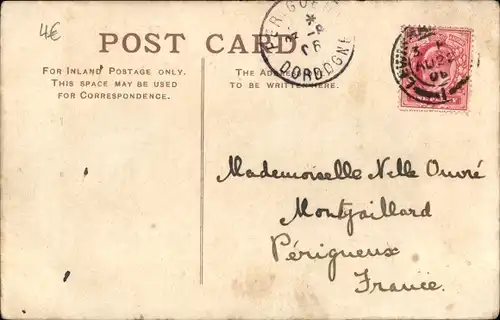 4€
POST CARD.
FOR INLAND POSTAGE ONLY.
THIS SPACE MAY BE USED
FOR CORRESPONDENCE.
THE
TO BE WRITTEN HERE.
DORDOGNE
Mademoiselle Nelle Ouvré
Montjaillard
Périgueux
France.